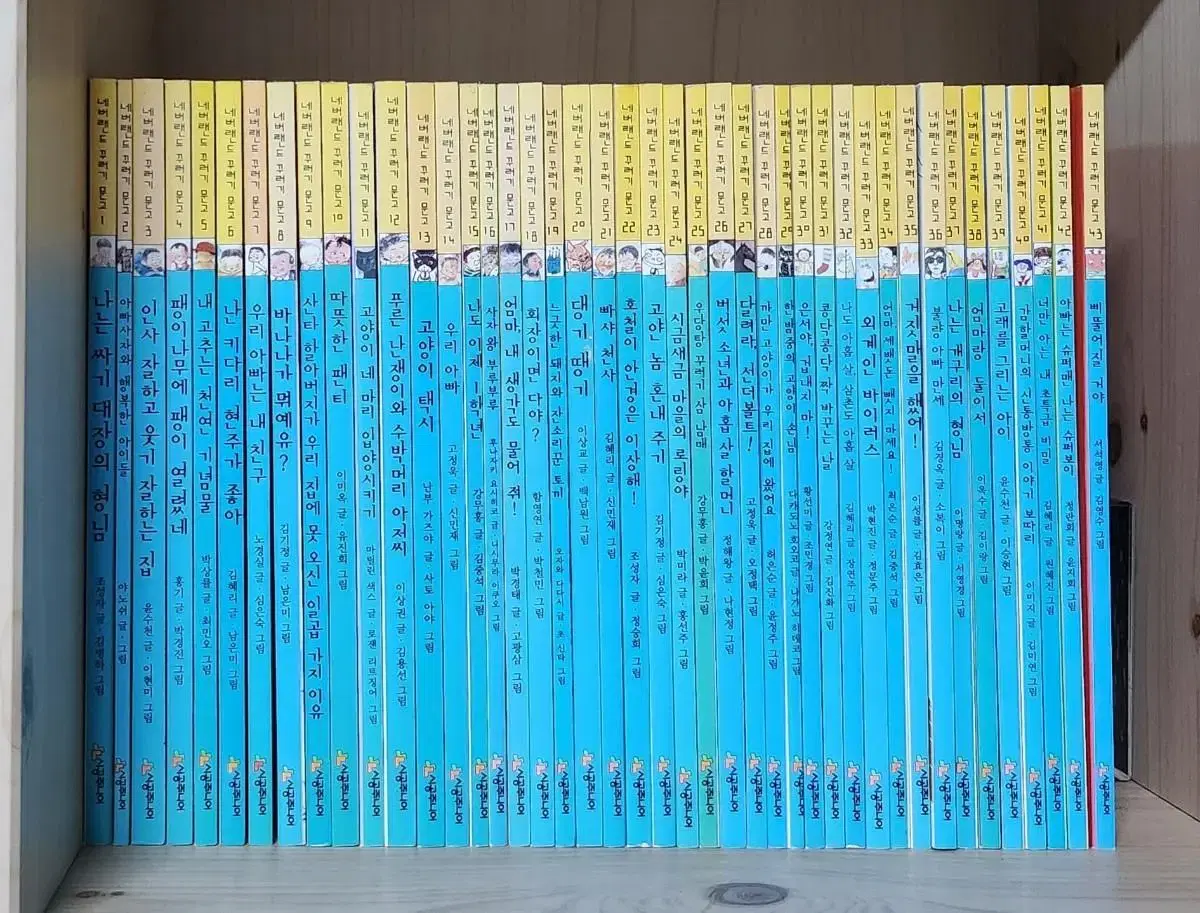 네버랜드 꾸러기 문고 1 나는 싸기 대장의 형님 조성자 글·김병하 그림 시공주니어
네버랜드 꾸러기 문고 2 아빠사자와 행복한 아이들 야노쉬 글·그림 시공주니어
네버랜드 꾸러기 문고 3 인사 잘하고 웃기 잘하는 집 윤수천 글·이현미 그림 시공주니어
네버랜드 꾸러기 문고 4 팽이나무에 팽이 열렸네 홍기 글·박경진 그림 시공주니어
네버랜드 꾸러기 문고 5 내 고추는 천연 기념물 박상률 글·최민오 그림 시공주니어
네버랜드 꾸러기 문고 6 난 키다리 현주가 좋아 김혜리 글·남은미 그림 시공주니어
네버랜드 꾸러기 문고 7 우리 아빠는 내 친구 노경실 글·심은숙 그림 시공주니어
네버랜드 꾸러기 문고 8 바나나가 뭐예유? 김기정 글·남은미 그림 시공주니어
네버랜드 꾸러기 문고 9 산타 할아버지가 우리 집에 못 오신 일곱 가지 이유 시공주니어
네버랜드 꾸러기 문고 10 따뜻한 팬티 이미옥 글·유진희 그림 시공주니어
네버랜드 꾸러기 문고 11 고양이 네 마리 입양시키기 마릴린 색스 글·로젠 리트징어 그림 시공주니어
네버랜드 꾸러기 문고 12 푸른 난쟁이와 수박머리 아저씨 이상권 글·김용선 그림 시공주니어
네버랜드 꾸러기 문고 13 고양이 택시 난부 가즈야 글·사토 아야 그림 시공주니어
네버랜드 꾸러기 문고 14 우리 아빠 고정욱 글·신민재 그림 시공주니어
네버랜드 꾸러기 문고 15 나도 이제 1학년 강무홍 글·김중석 그림 시공주니어
네버랜드 꾸러기 문고 16 사자왕 부루부루 후나자키 요시히코 글·니시무라 이쿠오 그림 시공주니어
네버랜드 꾸러기 문고 17 엄마, 내 생각도 물어 줘! 박경태 글·고광삼 그림 시공주니어
네버랜드 꾸러기 문고 18 회장이면 다야? 함영연 글·박천민 그림 시공주니어
네버랜드 꾸러기 문고 19 느긋한 돼지와 잔소리꾼 토끼 오자와 다다시 글·초 신타 그림 시공주니어
네버랜드 꾸러기 문고 20 댕기 땡기 이상교 글·백남원 그림 시공주니어
네버랜드 꾸러기 문고 21 빠샤 천사 김혜리 글·신민재 그림 시공주니어
네버랜드 꾸러기 문고 22 호철이 안경은 이상해! 조성자 글·정승희 그림 시공주니어
네버랜드 꾸러기 문고 23 고얀 놈 혼내 주기 김기정 글·심은숙 그림 시공주니어
네버랜드 꾸러기 문고 24 시금새금 마을의 로링야 박미라 글·홍선주 그림 시공주니어
네버랜드 꾸러기 문고 25 우당탕 꾸러기 삼 남매 강무홍 글·박윤희 그림 시공주니어
네버랜드 꾸러기 문고 26 버섯 소년과 아홉 살 할머니 정해왕 글·나현정 그림 시공주니어
네버랜드 꾸러기 문고 27 달려라, 선더볼트! 고정욱 글·오정택 그림 시공주니어
네버랜드 꾸러기 문고 28 까만 고양이가 우리 집에 왔어요 허은순 글·윤정주 그림 시공주니어
네버랜드 꾸러기 문고 29 한밤중의 고양이 손님 시공주니어
네버랜드 꾸러기 문고 30 은서야, 겁내지 마! 황선미 글·조민경 그림 시공주니어
네버랜드 꾸러기 문고 31 콩닥콩닥 짝 바꾸는 날 강정연 글·김진화 그림 시공주니어
네버랜드 꾸러기 문고 32 나도 아홉 살, 삼촌도 아홉 살 김혜리 글·장연주 그림 시공주니어
네버랜드 꾸러기 문고 33 외계인 바이러스 박현진 글·정문주 그림 시공주니어
네버랜드 꾸러기 문고 34 엄마 세뱃돈 뺏지 마세요! 최은순 글·김중석 그림 시공주니어
네버랜드 꾸러기 문고 35 거짓말을 했어! 이성률 글·김효은 그림 시공주니어
네버랜드 꾸러기 문고 36 불량 아빠 만세 김경옥 글·소복이 그림 시공주니어
네버랜드 꾸러기 문고 37 나는 개구리의 형님 이명랑 글·서영경 그림 시공주니어
네버랜드 꾸러기 문고 38 엄마랑 둘이서 이옥수 글·김이랑 그림 시공주니어
네버랜드 꾸러기 문고 39 고래를 그리는 아이 윤수천 글·이승현 그림 시공주니어
네버랜드 꾸러기 문고 40 감할머니의 신통방통 이야기 보따리 이미지 글·김미연 그림 시공주니어
네버랜드 꾸러기 문고 41 너만 아는 내 초특급 비밀 김혜리 글·원혜진 그림 시공주니어
네버랜드 꾸러기 문고 42 아빠는 슈퍼맨 나는 슈퍼보이 정란희 글·윤지회 그림 시공주니어
네버랜드 꾸러기 문고 43 삐뚤어질 거야 서석영 글·김영수 그림 시공주니어